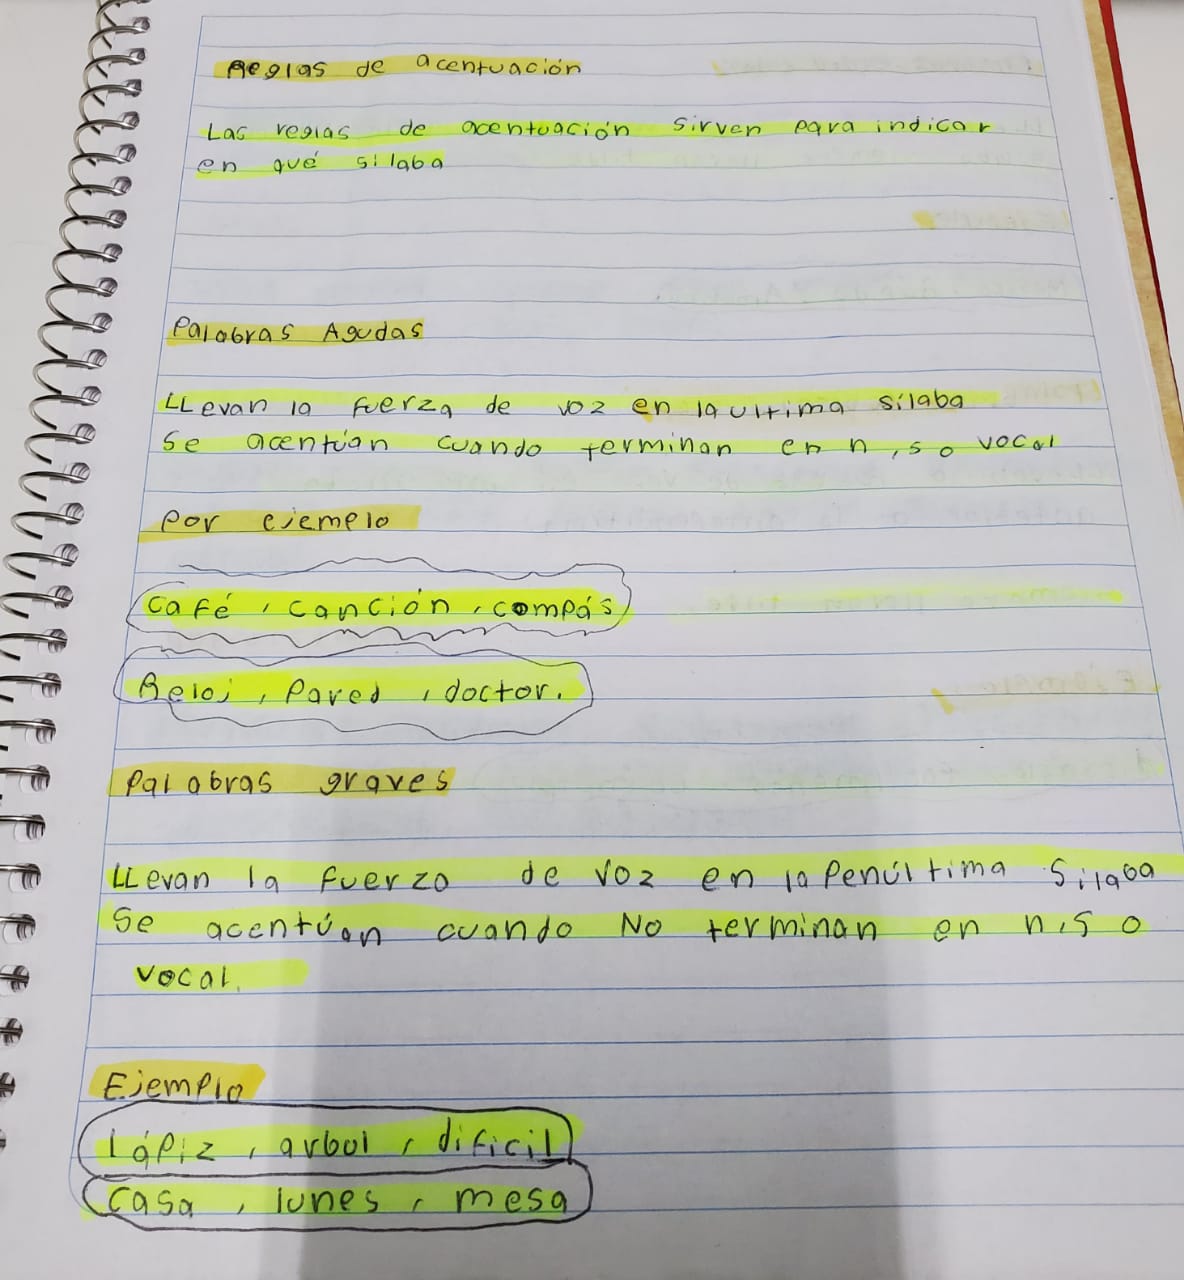 Reglas de acentuación
Las reglas de acentuación sirven para indicar
en qué silaba
Palabras Agudas
LLevan la fuerza de voz en la ultima sílaba
Se acentúan cuando terminan en n, s o vocal
Por ejemplo
Café, canción, compás
Reloj, Pared, doctor.
Palabras graves
LLevan la fuerza de voz en la Penúltima Silaba
Se acentúan cuando No terminan en n, s o
vocal.
Ejemplo
Lápiz, arbol, dificil
Casa, lunes, mesa